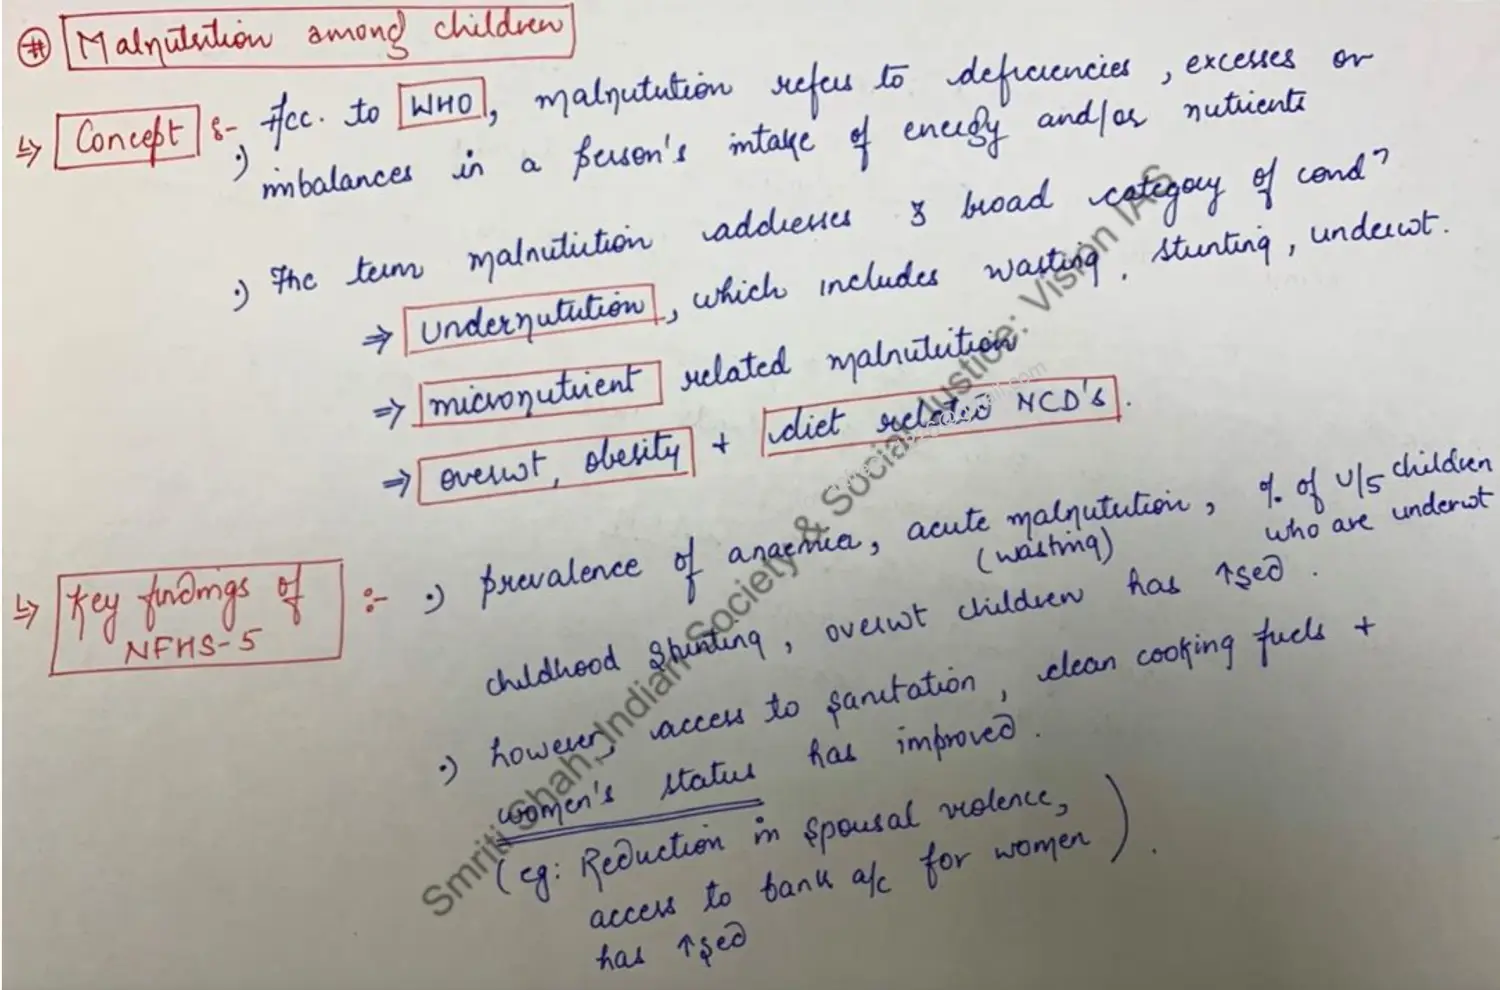 # Malnutrition among children
↳ Concept :- •) Acc. to WHO, malnutrition refers to deficiencies, excesses or
imbalances in a person's intake of energy and/or nutrients
•) The term malnutrition addresses 3 broad category of condⁿ
⇒ undernutrition, which includes wasting, stunting, underwt.
⇒ micronutrient related malnutrition
⇒ overwt, obesity + diet related NCD's.
↳ Key findings of NFHS-5 :- •) prevalence of anaemia, acute malnutrition, % of U/5 children
(wasting) who are underwt
childhood stunting, overwt children has ↑sed.
•) however, access to sanitation, clean cooking fuels +
women's status has improved.
(eg: Reduction in spousal violence,
access to bank a/c for women).
has ↑sed
Smriti Shah_Indian Society & Social Justice: Vision IAS